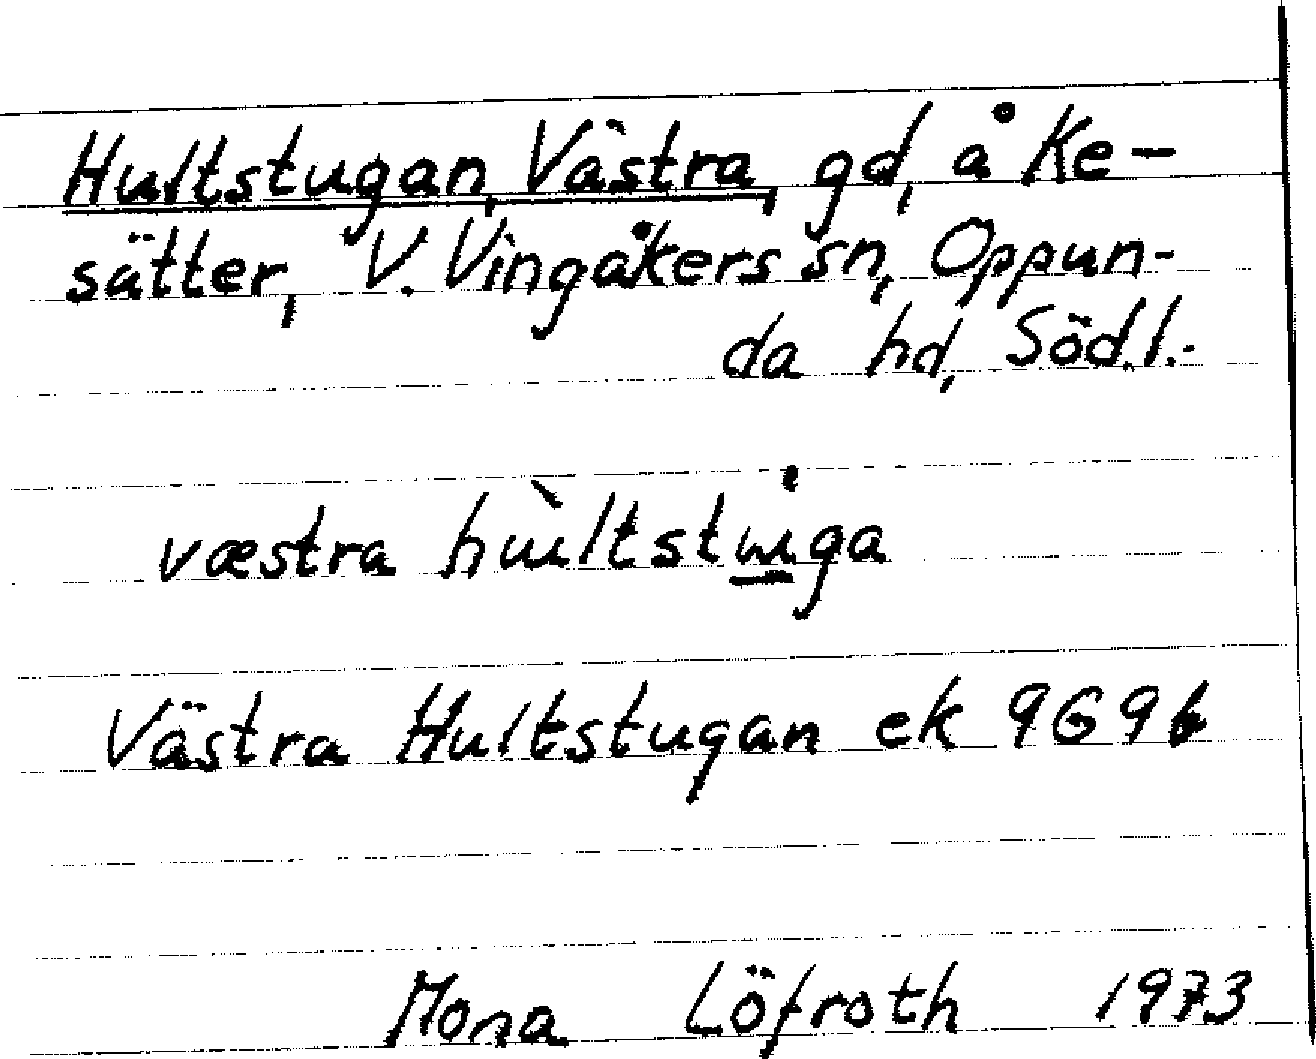 Hultstugan, Västra, gd, å Ke-
sätter, V. Vingåkers sn, Oppun-
da hd, Söd.l.
væstra hɯ̀ltstɯ̲̇ga
Västra Hultstugan ek 9G9b
Mona Löfroth 1973